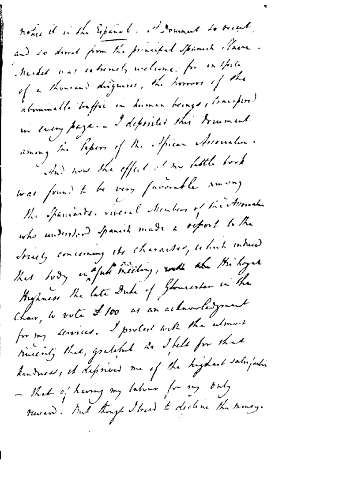 notes it in the Español. A Document so recent
and so direct from the principal Spanish Slave-
Market was extremely welcome: for in spite
of a thousand disguises, the horrors of the
abominable traffic in human beings, transpired
in every page. I deposited this Document
among the Papers of the African Association.
And now the effect of my little book
was found to be very favorable among
the Spaniards. Several Members of the Association
who understood Spanish made a report to the
Society concerning its character, which induced
that body in a full meeting, His Royal
Highness the late Duke of Gloucester in the
Chair, to vote £100 as an acknowledgment
for my services. I protest with the utmost
sincerity that, grateful as I felt for that
kindness, it deprived me of the highest satisfaction
– that of having my labour for my only
reward. But though I tried to decline the money,